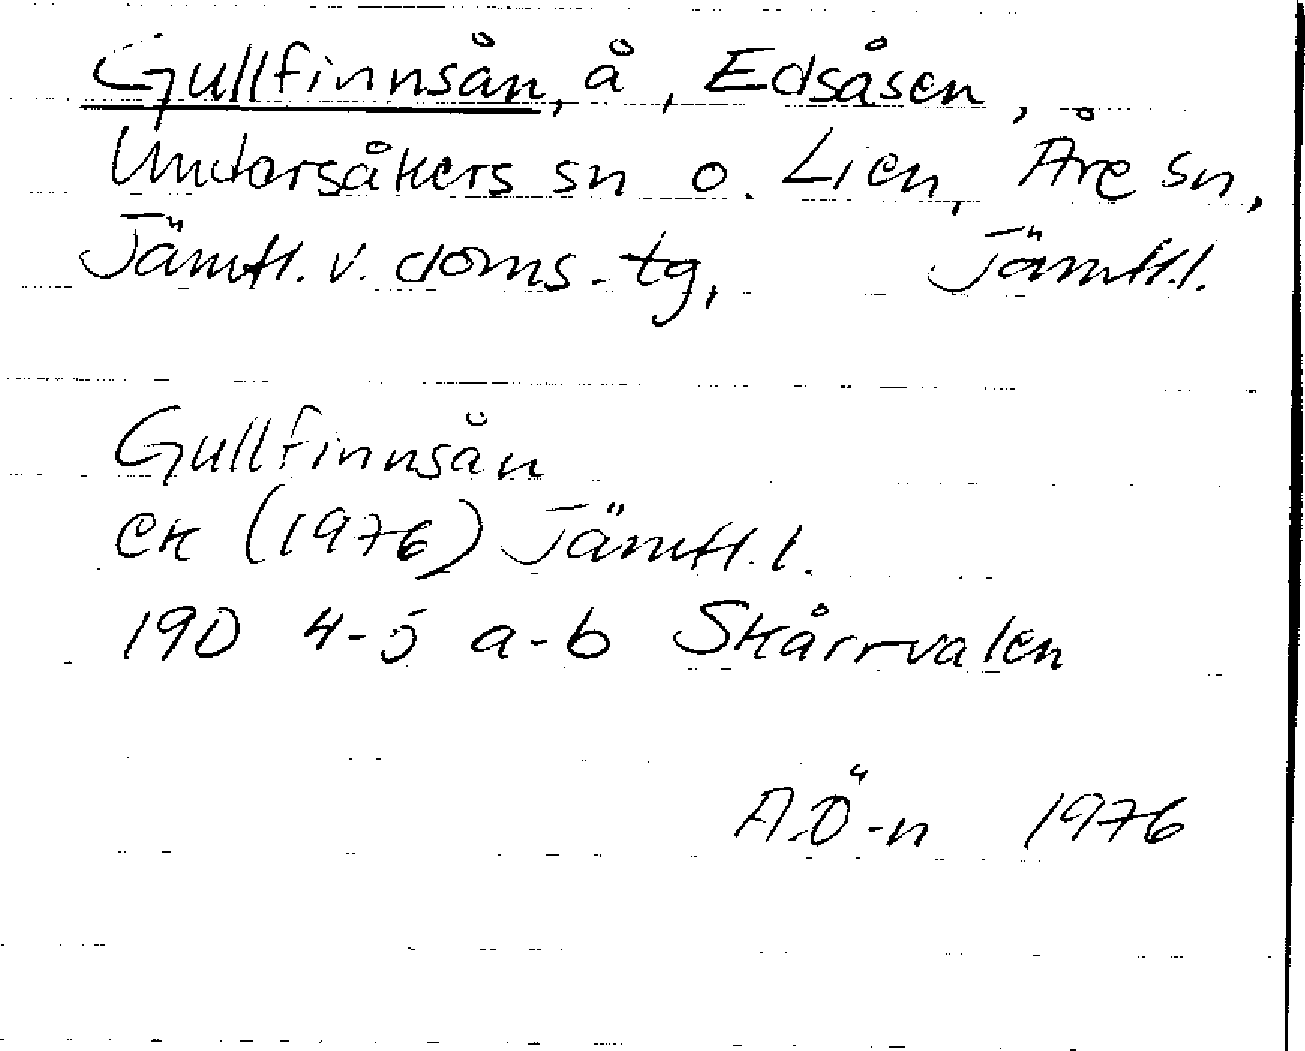 Gullfinnsån, å, Edsåsen,
Undersåkers sn o. Lien, Åre sn,
Jämtl. v. doms-tg, Jämtl.l.
Gullfinnsån
ek (1976) Jämtl.l.
19D 4-5 a-b Skårrvalen
A.Ö-n 1976